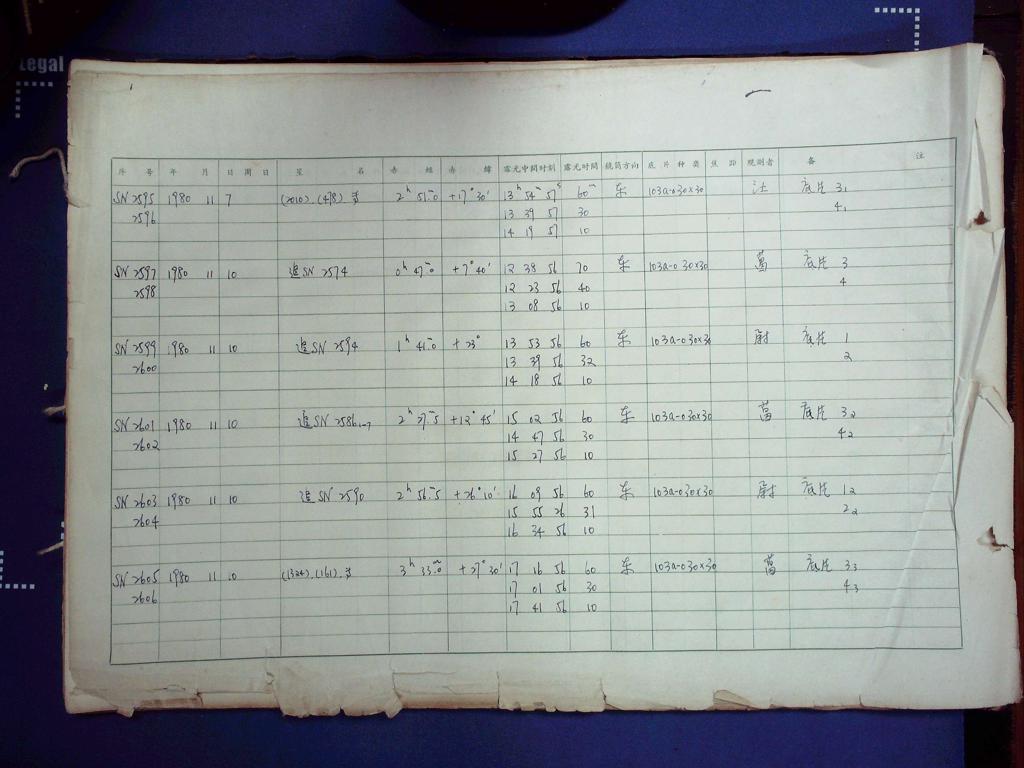 Legal
序 号 年 月 日 周 日 星 名 赤 经 赤 纬 露光中间时刻 露光时间 镜筒方向 底片种类 焦距 观测者 备 注
SN 2595 1980 11 7 (2010).(478). 2h 51m.0 +17° 30' 13h 54m 57s 60m 东 103a-O 30×30 底片 31
2596 13 39 57 30 41
14 19 57 10
SN 2597 1980 11 10 追SN 2574 0h 47m.0 +7° 40' 12 38 56 70 东 103a-O 30×30 葛 底片 3
2598 12 23 56 40 4
13 08 56 10
SN 2599 1980 11 10 追SN 2594 1h 41m.0 +23° 13 53 56 60 东 103a-O 30×30 尉 底片 1
2600 13 39 56 32 2
14 18 56 10
SN 2601 1980 11 10 追SN 2586 1-7 2h 27m.5 +12° 45' 15 02 56 60 东 103a-O 30×30 葛 底片 32
2602 14 47 56 30 42
15 27 56 10
SN 2603 1980 11 10 追SN 2590 2h 56m.5 +26° 10' 16 09 56 60 东 103a-O 30×30 尉 底片 12
2604 15 55 26 31 22
16 34 56 10
SN 2605 1980 11 10 (1324).(161). 3h 33m.0 +27° 30' 17 16 56 60 东 103a-O 30×30 葛 底片 33
2606 17 01 56 30 43
17 41 56 10